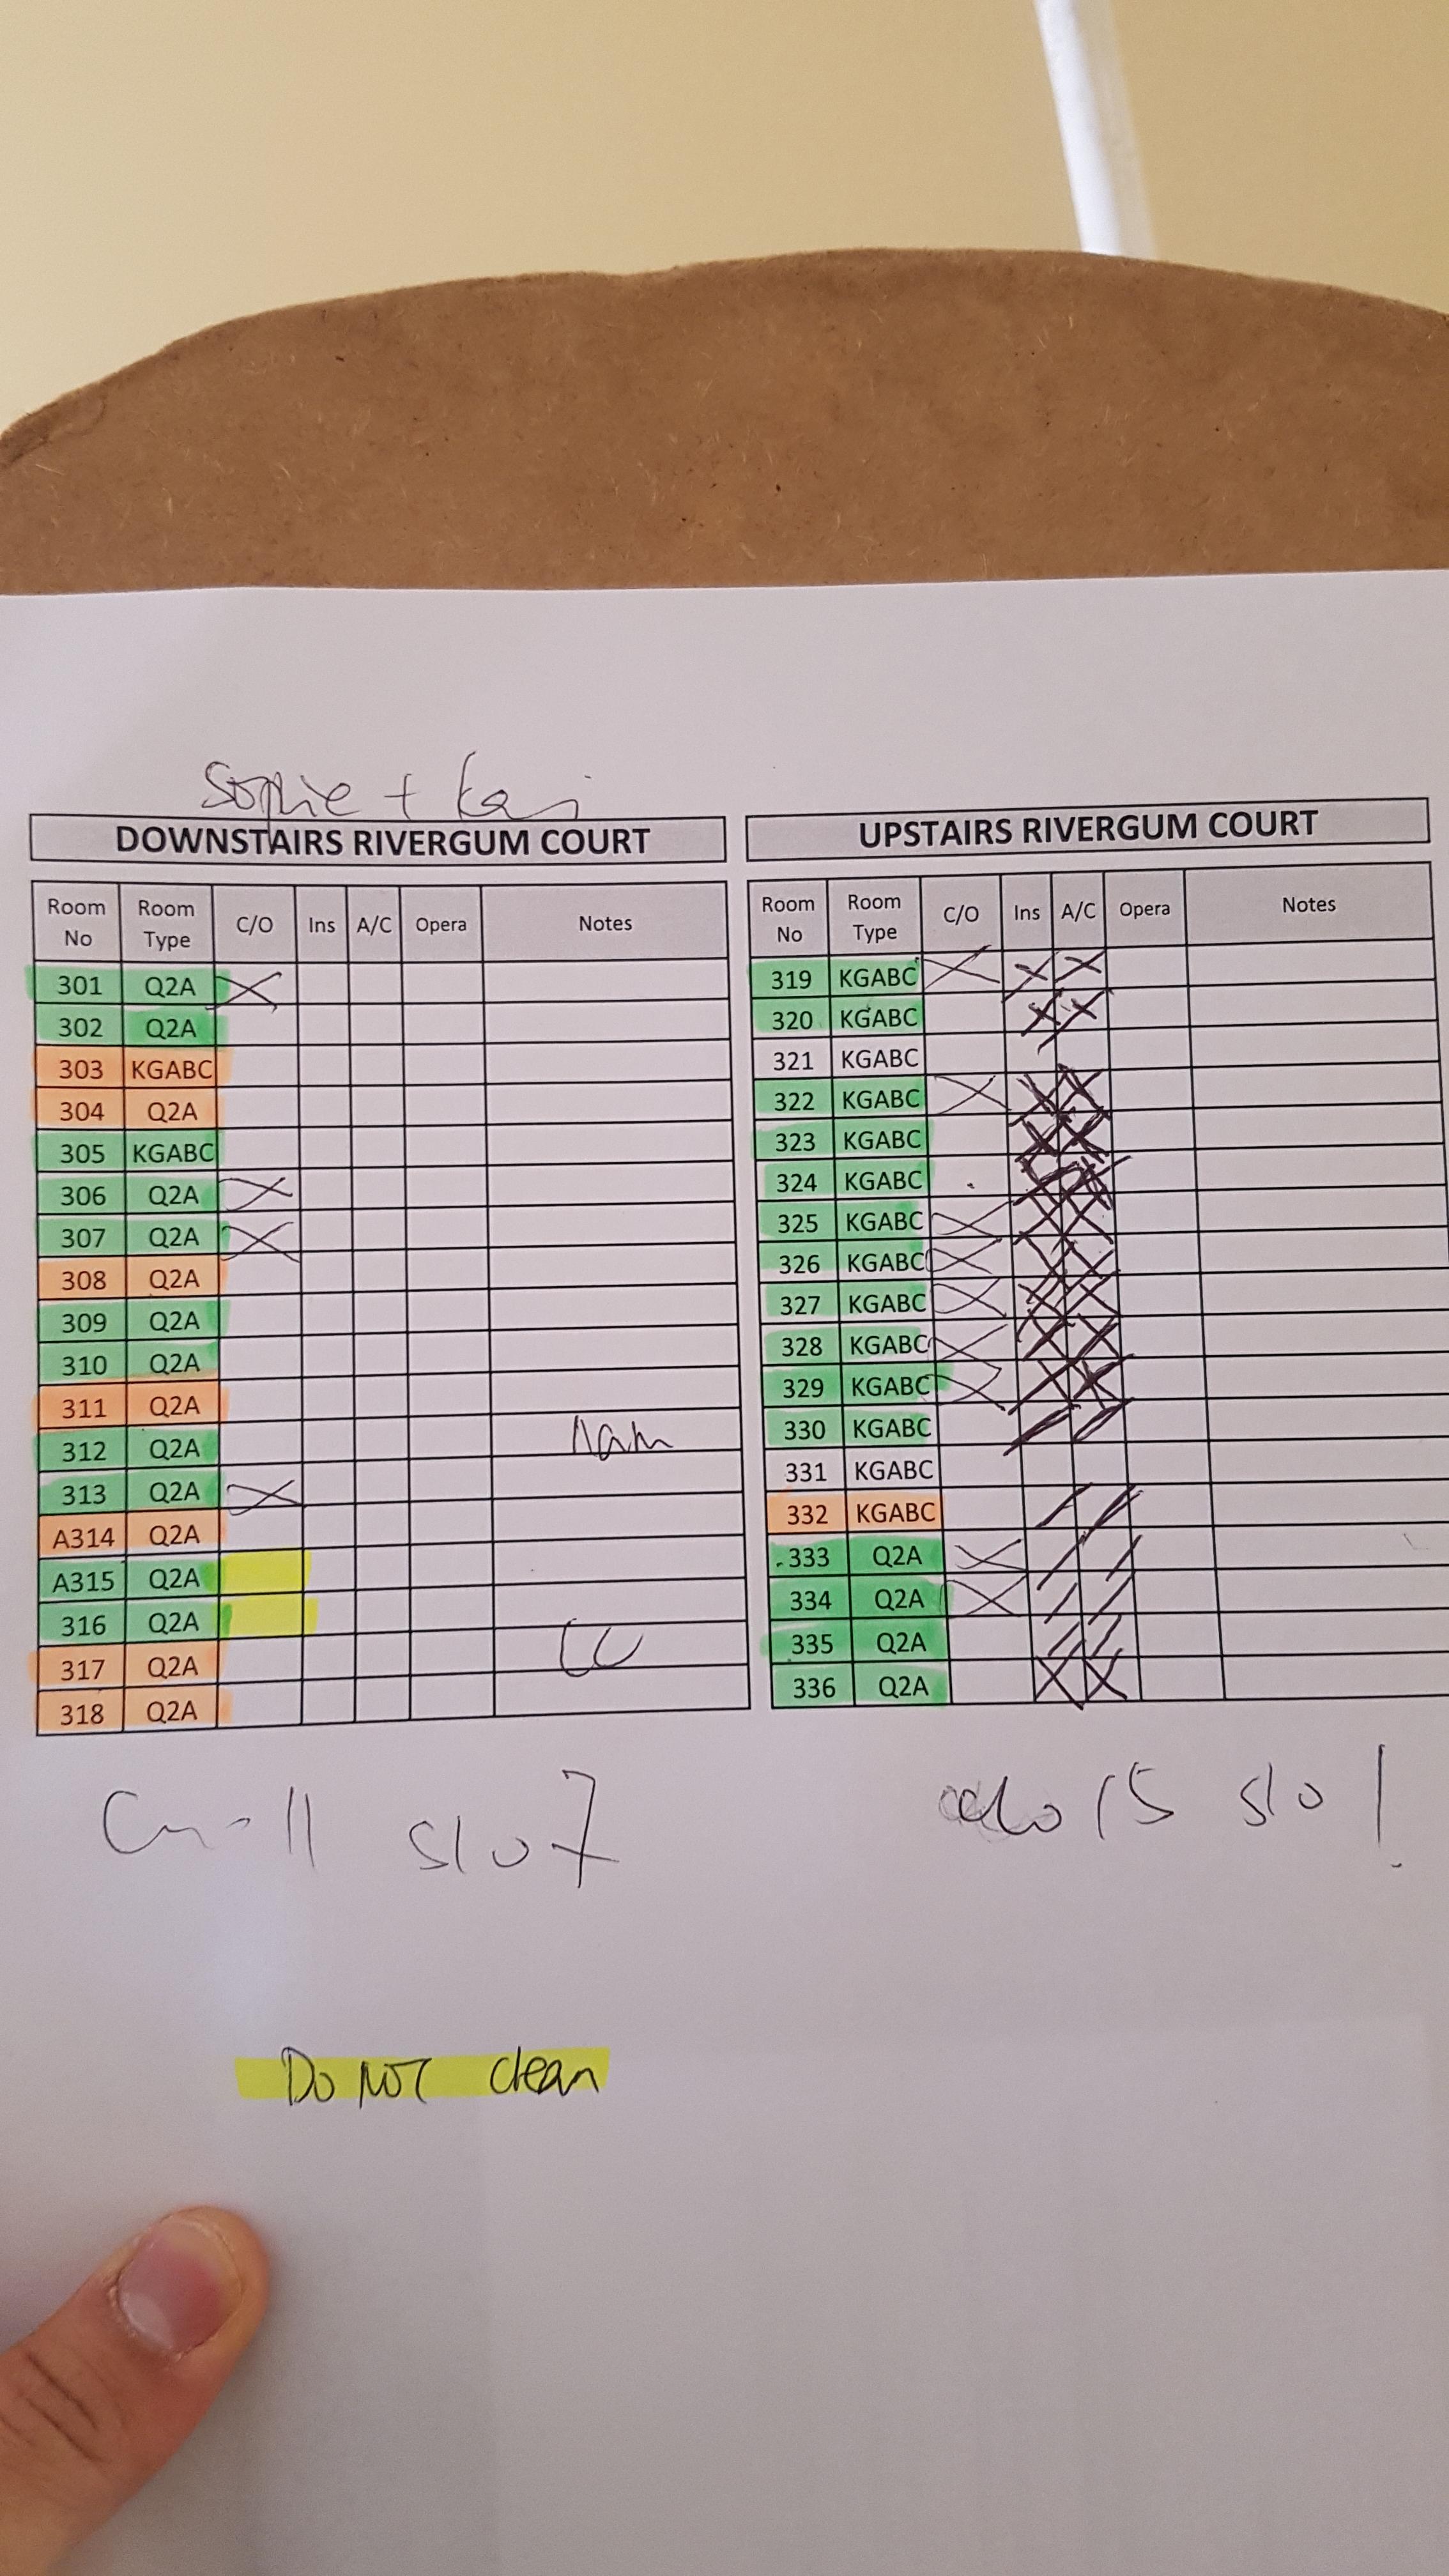 Sophie + Kai
DOWNSTAIRS RIVERGUM COURT
Room No Room Type C/O Ins A/C Opera Notes
301 Q2A X
302 Q2A
303 KGABC
304 Q2A
305 KGABC
306 Q2A X
307 Q2A X
308 Q2A
309 Q2A
310 Q2A
311 Q2A
312 Q2A 11am
313 Q2A X
A314 Q2A
A315 Q2A
316 Q2A
317 Q2A
318 Q2A
UPSTAIRS RIVERGUM COURT
Room No Room Type C/O Ins A/C Opera Notes
319 KGABC X X X
320 KGABC X X
321 KGABC
322 KGABC X X X
323 KGABC X X
324 KGABC X X
325 KGABC X X X
326 KGABC X X X
327 KGABC X X X
328 KGABC X X X
329 KGABC X X X
330 KGABC / /
331 KGABC
332 KGABC / /
333 Q2A X / /
334 Q2A X / /
335 Q2A / /
336 Q2A X X
11 s/o 7
15 s/o 1
Do NOT clean